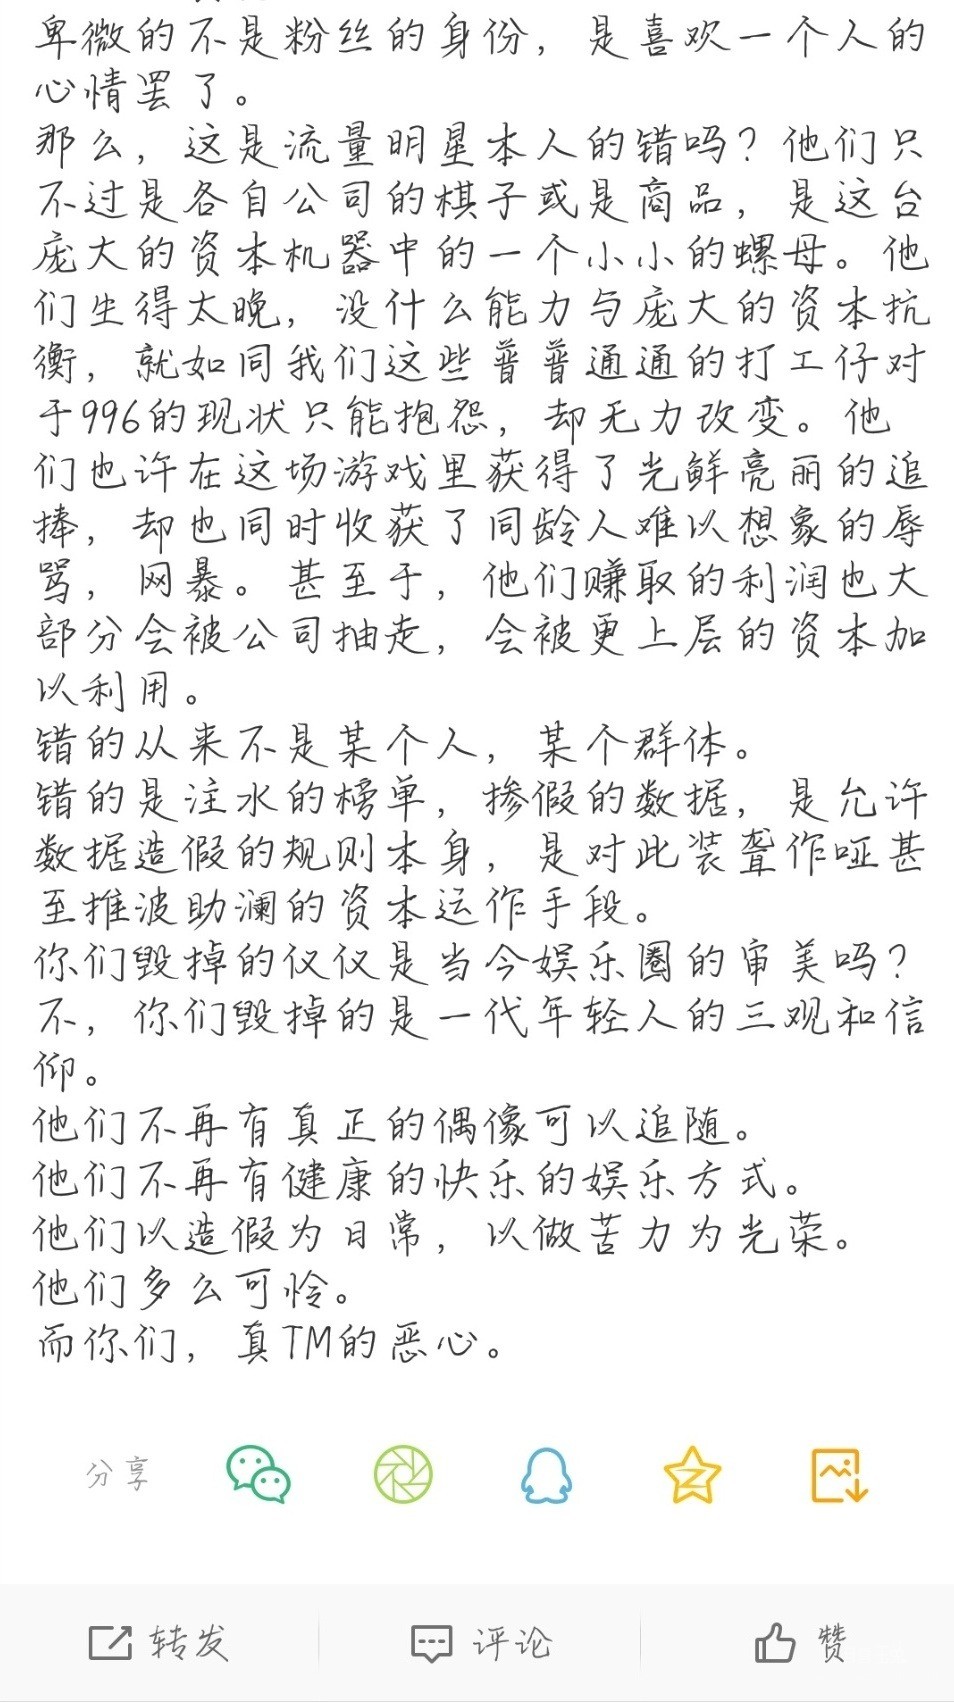 卑微的不是粉丝的身份，是喜欢一个人的
心情罢了。
那么，这是流量明星本人的错吗？他们只
不过是各自公司的棋子或是商品，是这台
庞大的资本机器中的一个小小的螺母。他
们生得太晚，没什么能力与庞大的资本抗
衡，就如同我们这些普普通通的打工仔对
于996的现状只能抱怨，却无力改变。他
们也许在这场游戏里获得了光鲜亮丽的追
捧，却也同时收获了同龄人难以想象的辱
骂，网暴。甚至于，他们赚取的利润也大
部分会被公司抽走，会被更上层的资本加
以利用。
错的从来不是某个人，某个群体。
错的是注水的榜单，掺假的数据，是允许
数据造假的规则本身，是对此装聋作哑甚
至推波助澜的资本运作手段。
你们毁掉的仅仅是当今娱乐圈的审美吗？
不，你们毁掉的是一代年轻人的三观和信
仰。
他们不再有真正的偶像可以追随。
他们不再有健康的快乐的娱乐方式。
他们以造假为日常，以做苦力为光荣。
他们多么可怜。
而你们，真TM的恶心。
分享
转发
评论
赞